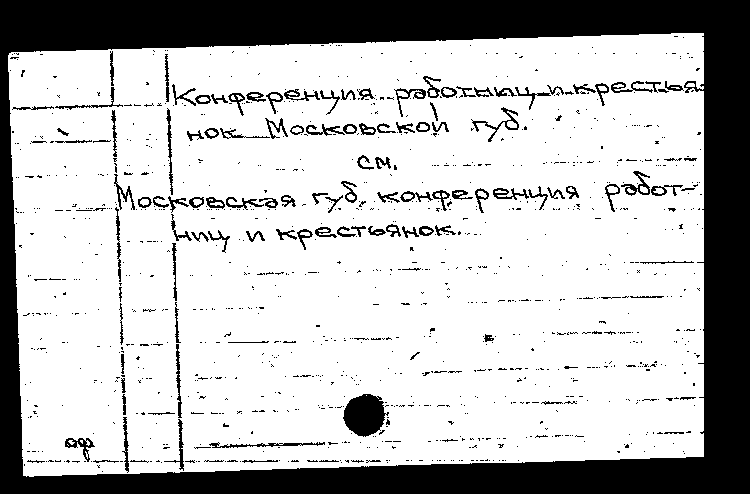 Конференция работниц и крестья-
нок Московской губ.
см.
Московская губ. конференция работ-
ниц и крестьянок.